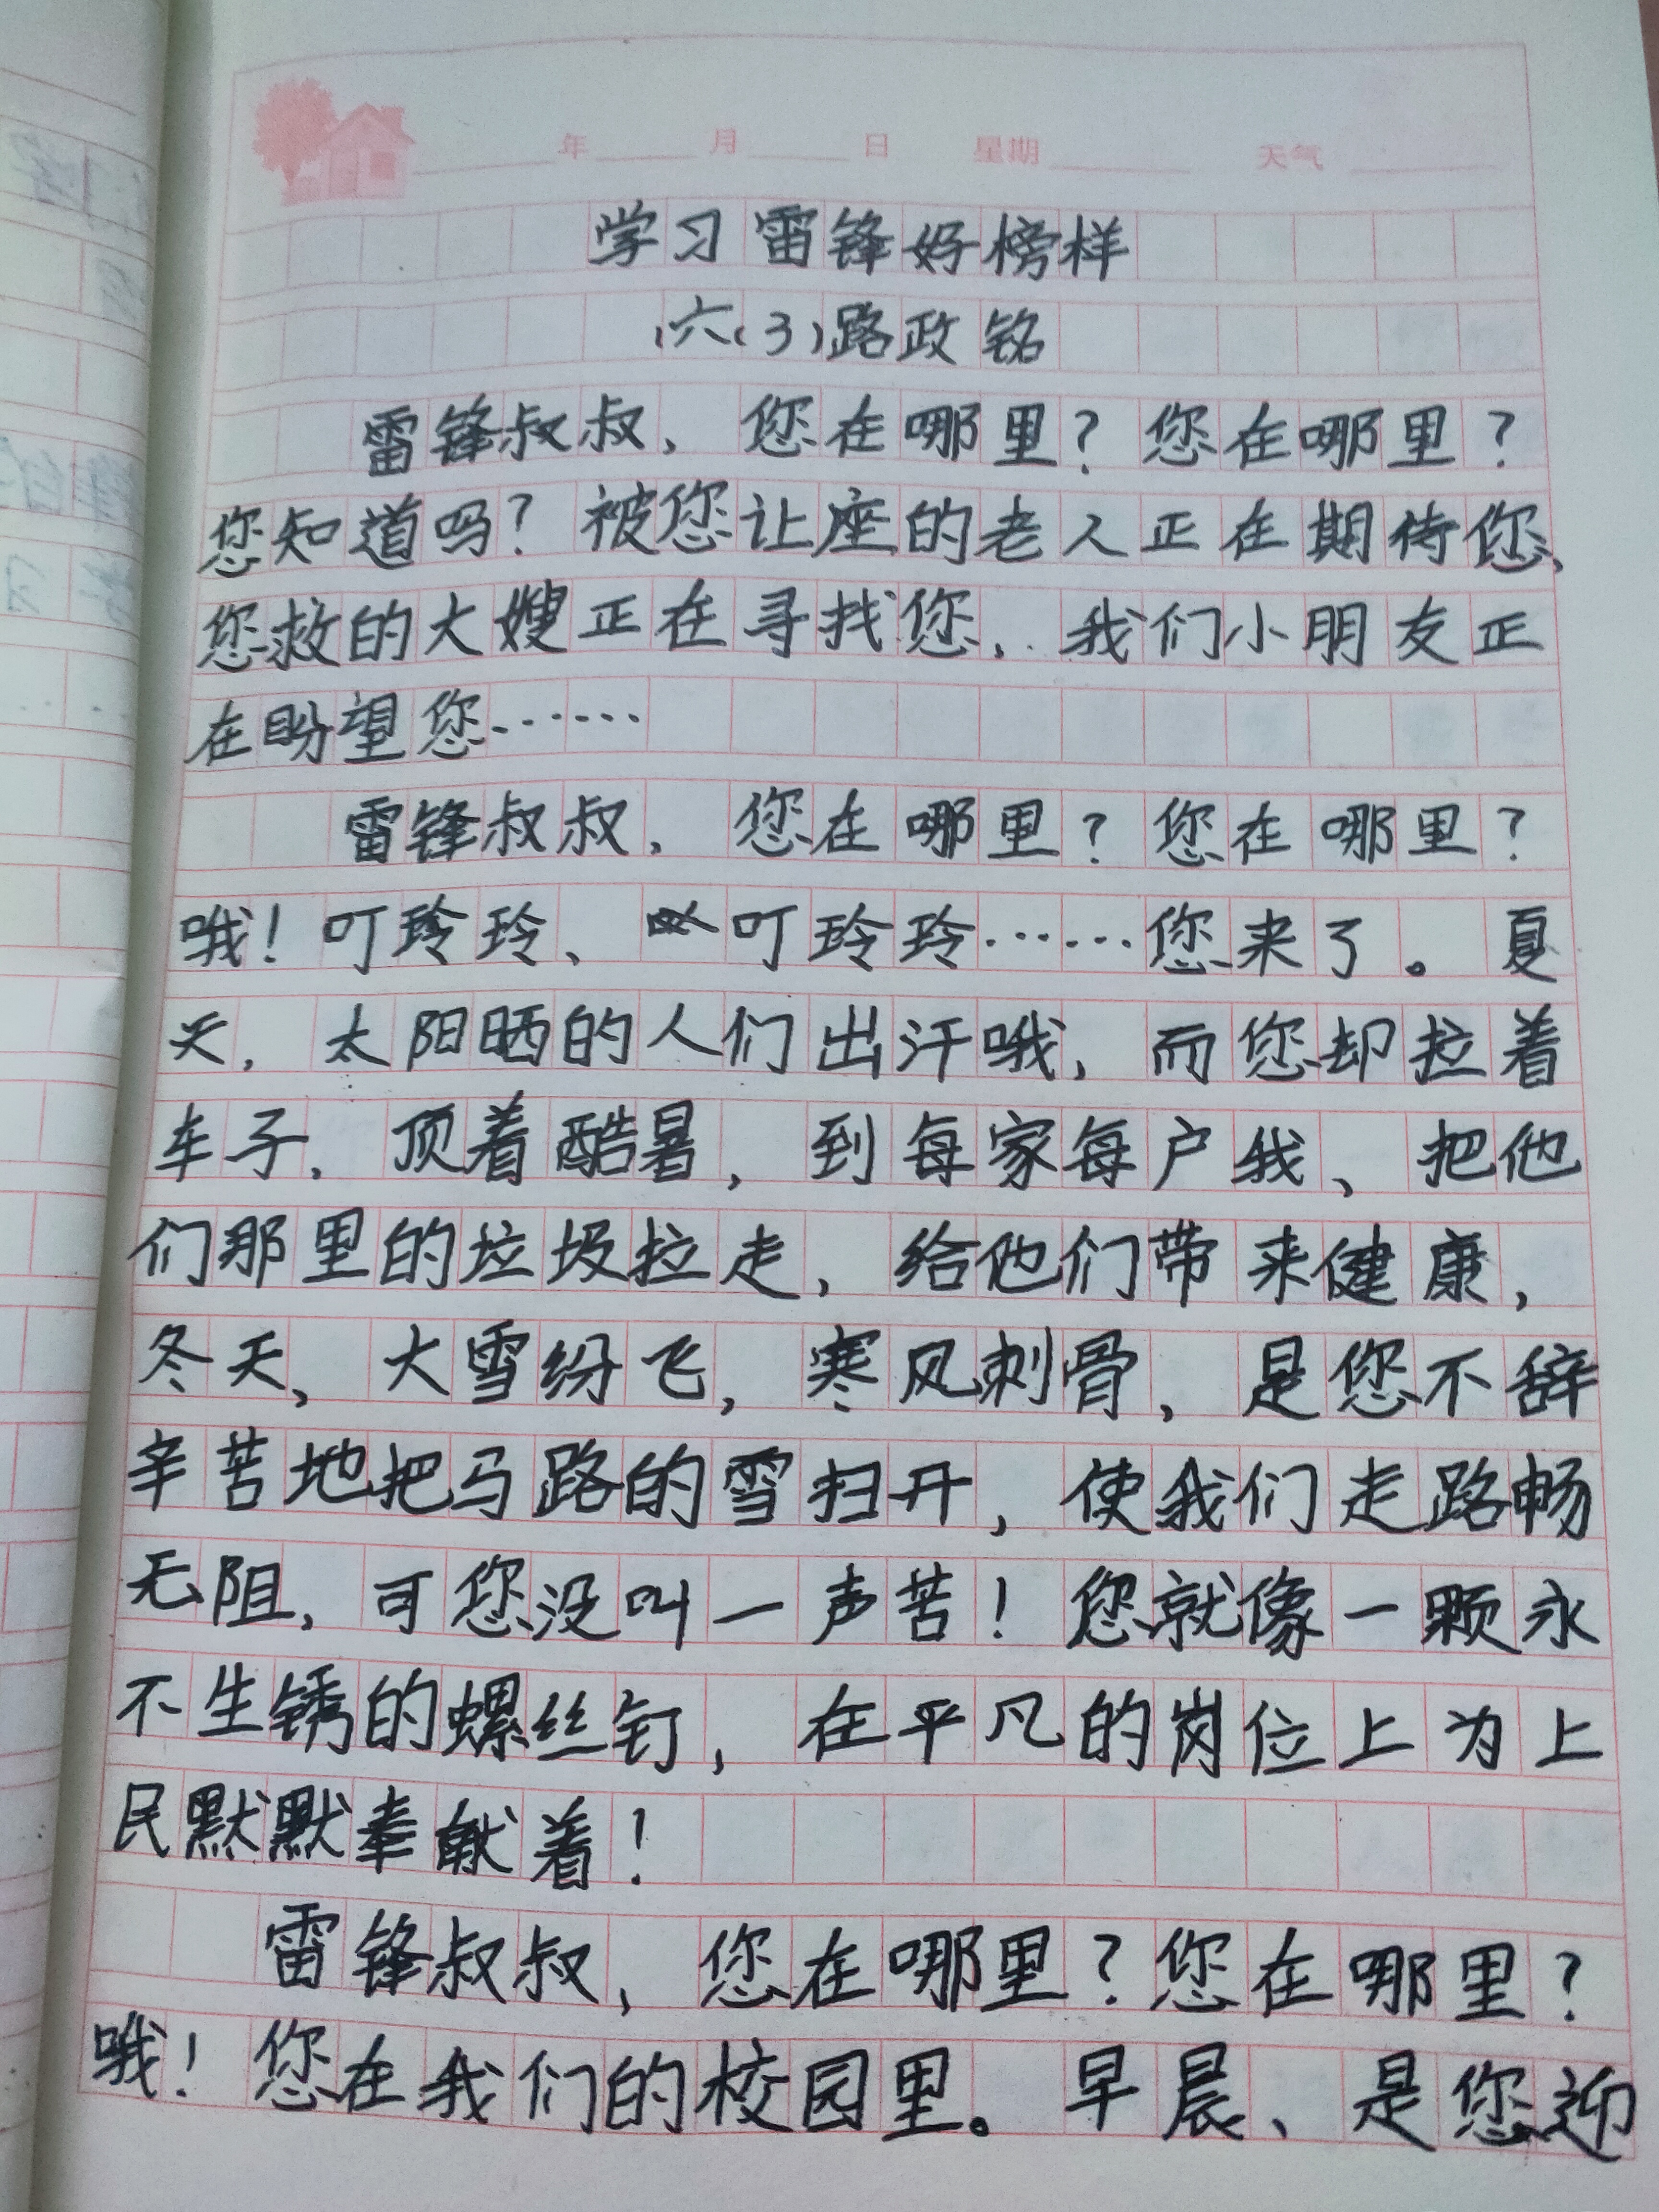 年 月 日 星期 天气
学习雷锋好榜样
六(3)路政铭
雷锋叔叔，您在哪里？您在哪里？
您知道吗？被您让座的老人正在期待您、
您救的大嫂正在寻找您，我们小朋友正
在盼望您……
雷锋叔叔，您在哪里？您在哪里？
哦！叮玲玲、叮玲玲……您来了。夏
天，太阳晒的人们出汗哦，而您却拉着
车子，顶着酷暑，到每家每户我、把他
们那里的垃圾拉走，给他们带来健康，
冬天，大雪纷飞，寒风刺骨，是您不辞
辛苦地把马路的雪扫开，使我们走路畅
无阻，可您没叫一声苦！您就像一颗永
不生锈的螺丝钉，在平凡的岗位上为上
民默默奉献着！
雷锋叔叔，您在哪里？您在哪里？
哦！您在我们的校园里。早晨、是您迎